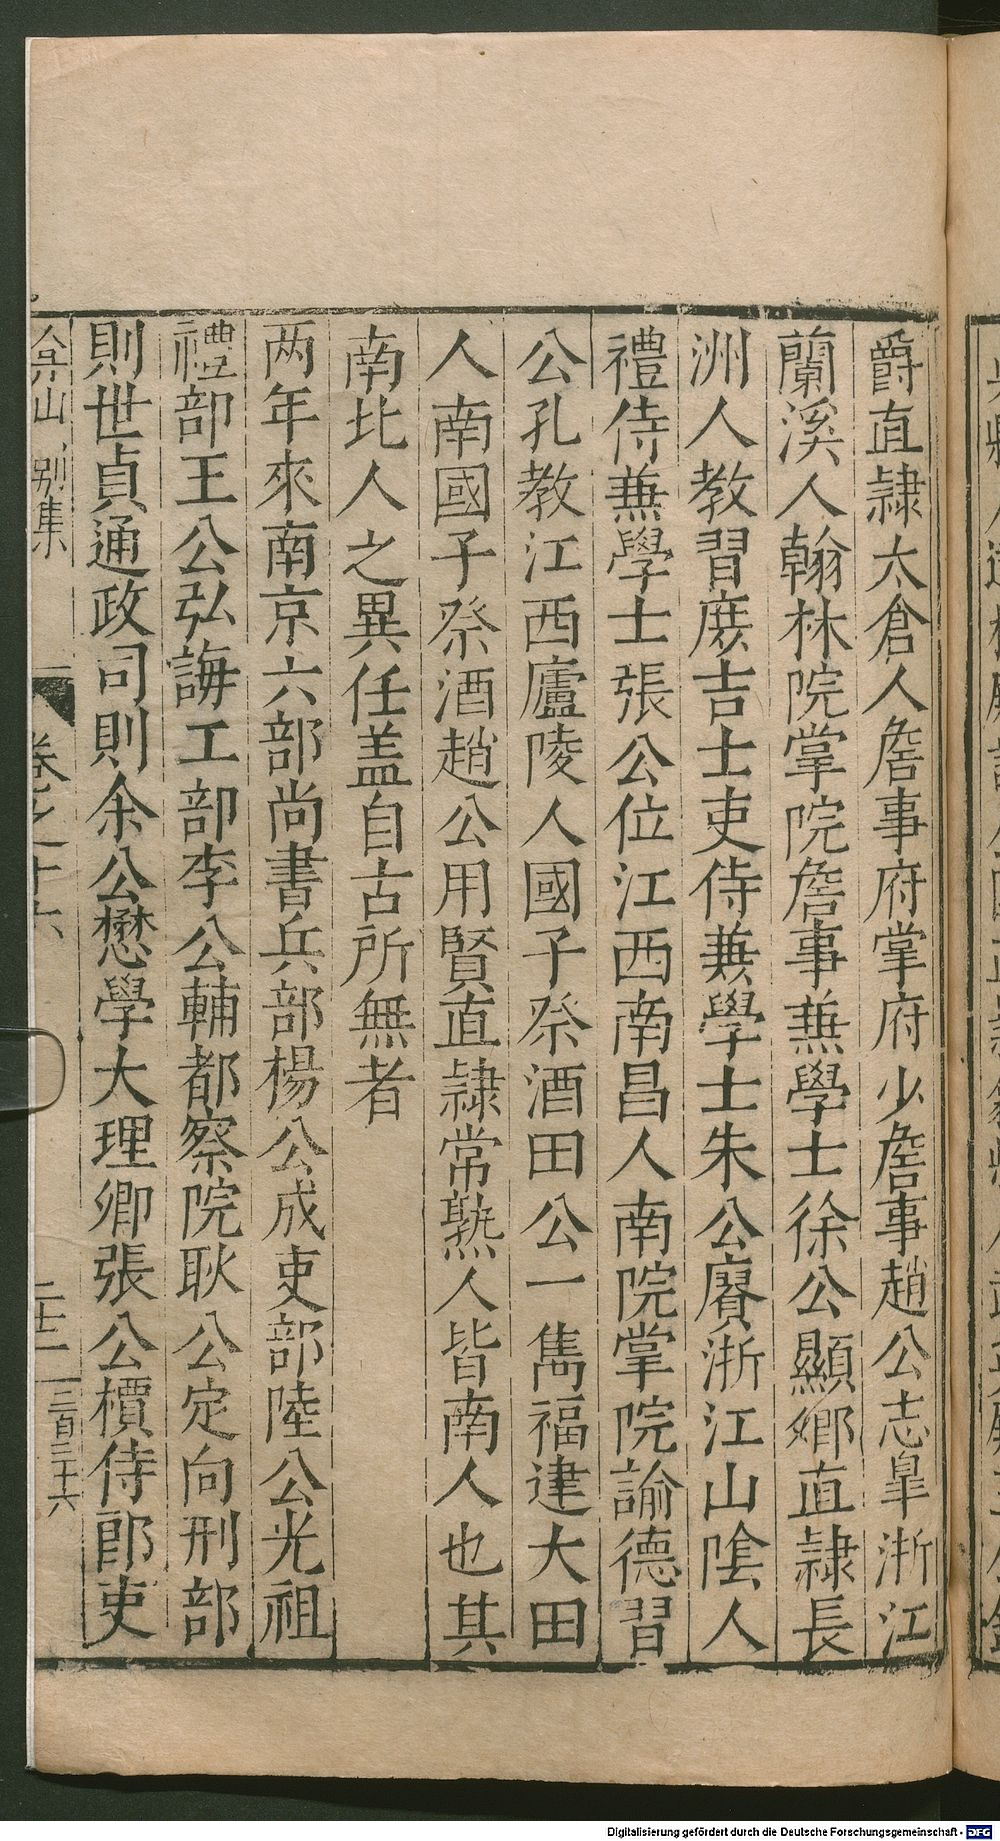 爵直隷太倉人詹事府掌府少詹事趙公志臯浙江
蘭溪人翰林院掌院詹事兼學士徐公顯鄉直隷長
洲人教習庶吉士吏侍兼學士朱公賡浙江山隂人
禮侍兼學士張公位江西南昌人南院掌院諭德習
公孔教江西廬陵人國子祭酒田公一雋福建大田
人南國子祭酒趙公用賢直隷常熟人皆南人也其
南北人之異任盖自古所無者
两年來南京六部尚書兵部楊公成吏部陸公光祖
禮部王公弘誨工部李公輔都察院耿公定向刑部
則世貞通政司則余公懋學大理卿張公檟侍郎吏
弇山別集
卷之十六
二十二
三百三十六
Digitalisierung gefördert durch die Deutsche Forschungsgemeinschaft - DFG